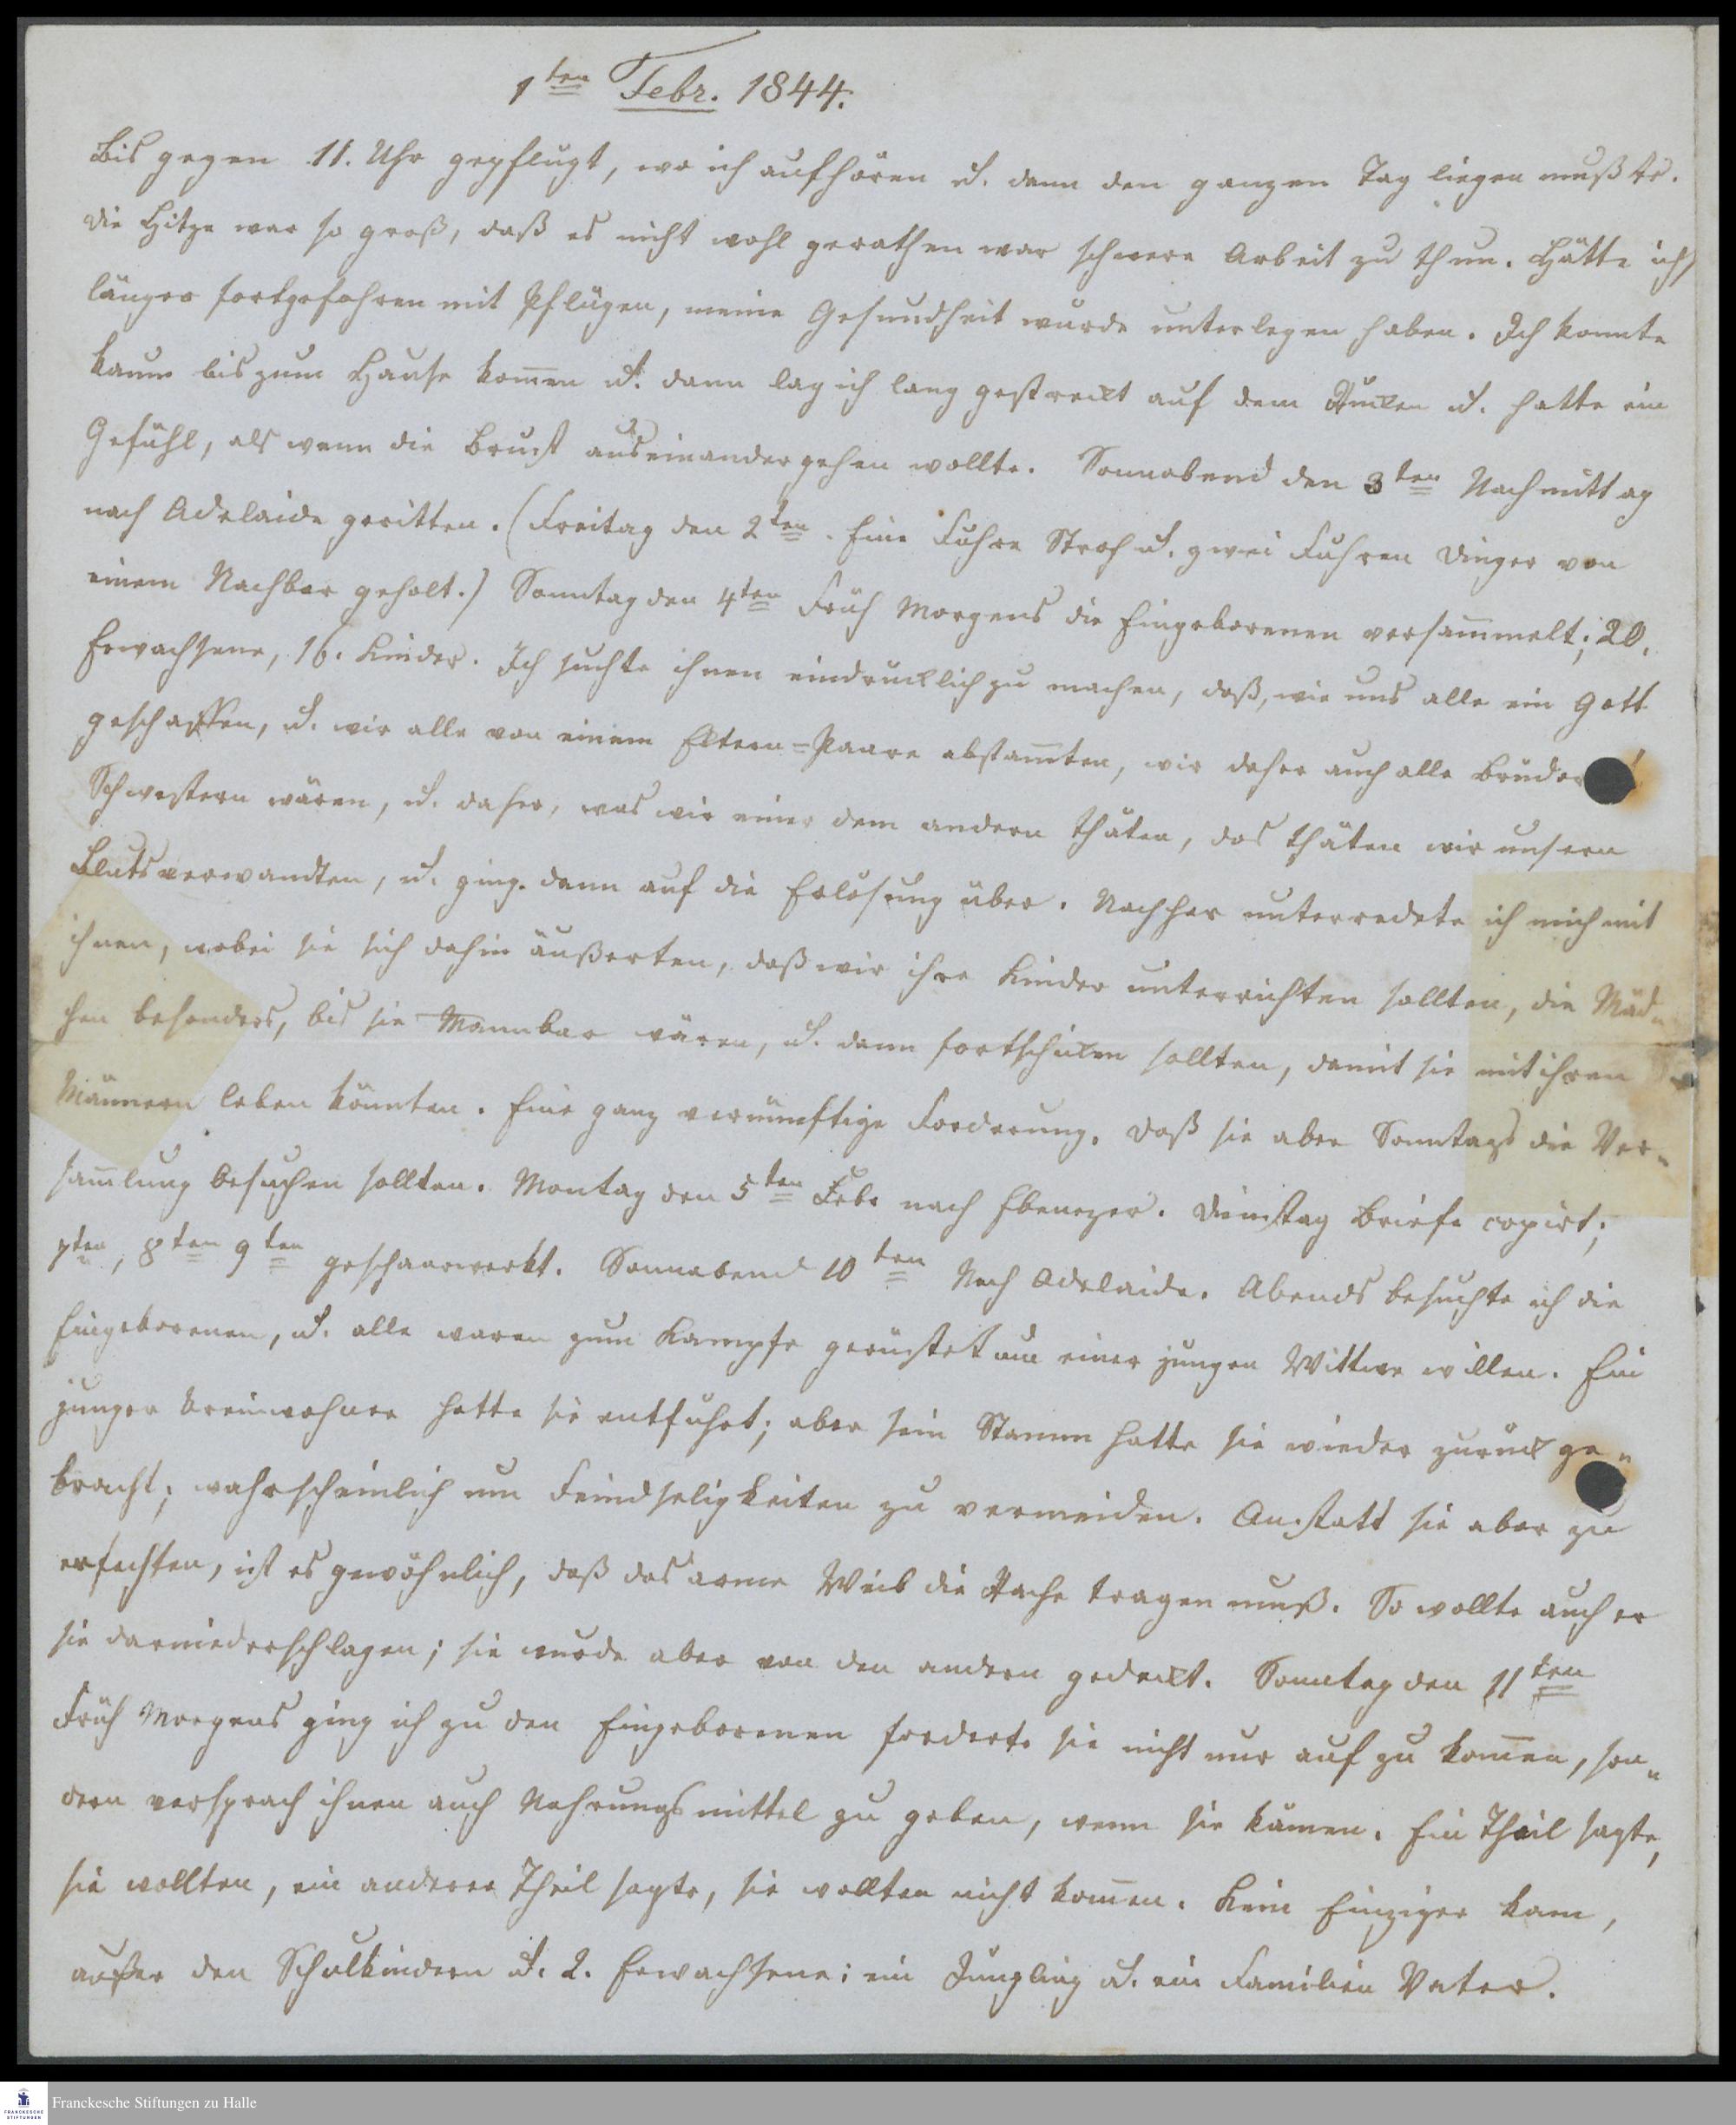 1ten Febr. 1844.
Bis gegen 11. Uhr gepflügt, wo ich aufhören u. dann den ganzen Tag liegen mußte.
Die Hitze war so groß, daß es nicht wohl gerathen war schwere Arbeit zu thun. Hätte ich
länger fortgefahren mit Pflügen, meine Gesundheit würde unterlegen haben. Ich konnte
kaum bis zum Hause kom̅en u. dann lag ich lang gestreckt auf dem Rücken u. hatte ein
Gefühl, als wenn die Brust auseinandergehen wollte. Sonnabend den 3ten Nachmittag
nach Adelaide geritten. (Freitag den 2ten. Eine Fuhre Stroh u. zwei Fuhren Dünger von
einem Nachbar geholt.) Sonntag den 4ten Früh Morgens die Eingeborenen versam̅melt; 20.
Erwachsene, 16. Kinder. Ich suchte ihnen eindrücklich zu machen, daß, wie uns alle ein Gott
geschaffen, u. wir alle von einem Eltern=Paare abstam̅ten, wir daher auch alle Brüder
Schwestern wären, u. daher, was wir einer dem andern thäten, das thäten wir unsern
Blutsverwandten, u. ging dann auf die Erlösung über. Nachher unterredete ich mich mit
ihnen, wobei sie sich dahin äußerten, daß wir ihre Kinder unterrichten sollten, die Mäd=
chen besonders, bis sie Mannbar wären, u. dann fortschicken sollten, damit sie mit ihren
Männern leben könnten. Eine ganz vernünftige Forderung. Daß sie aber Sonntags die Ver=
sam̅lung besuchen sollten. Montag den 5ten Febr nach Ebenezer. Dienstag Briefe copirt;
7ten, 8ten 9ten geschaarwerkt. Sonnabend 10ten Nach Adelaide. Abends besuchte ich die
Eingeborenen, u. alle waren zum Kampfe gerüstet um einer jungen Wittwe willen. Ein
junger Ureinwohner hatte sie entführt; aber sein Stamm hatte sie wieder zurück ge=
bracht; wahrscheinlich um Feindseligkeiten zu vermeiden. Anstatt sie aber zu
erfechten, ist es gewöhnlich, daß das arme Weib die Rache tragen muß. So wollte auch er
sie darniederschlagen; sie wurde aber von den andern gedeckt. Sonntag den 11ten
Früh Morgens ging ich zu den Eingeborenen forderte sie nicht nur auf zu kom̅en, son=
dern versprach ihnen auch Nahrungsmittel zu geben, wenn sie kämen. Ein Theil sagte,
sie wollten, ein anderer Theil sagte, sie wollten nicht kom̅en. Kein Einziger kam,
außer den Schulkindern u. 2. Erwachsene: ein Jüngling u. ein Familien Vater.
FRANCKESCHE
STIFTUNGEN
Franckesche Stiftungen zu Halle